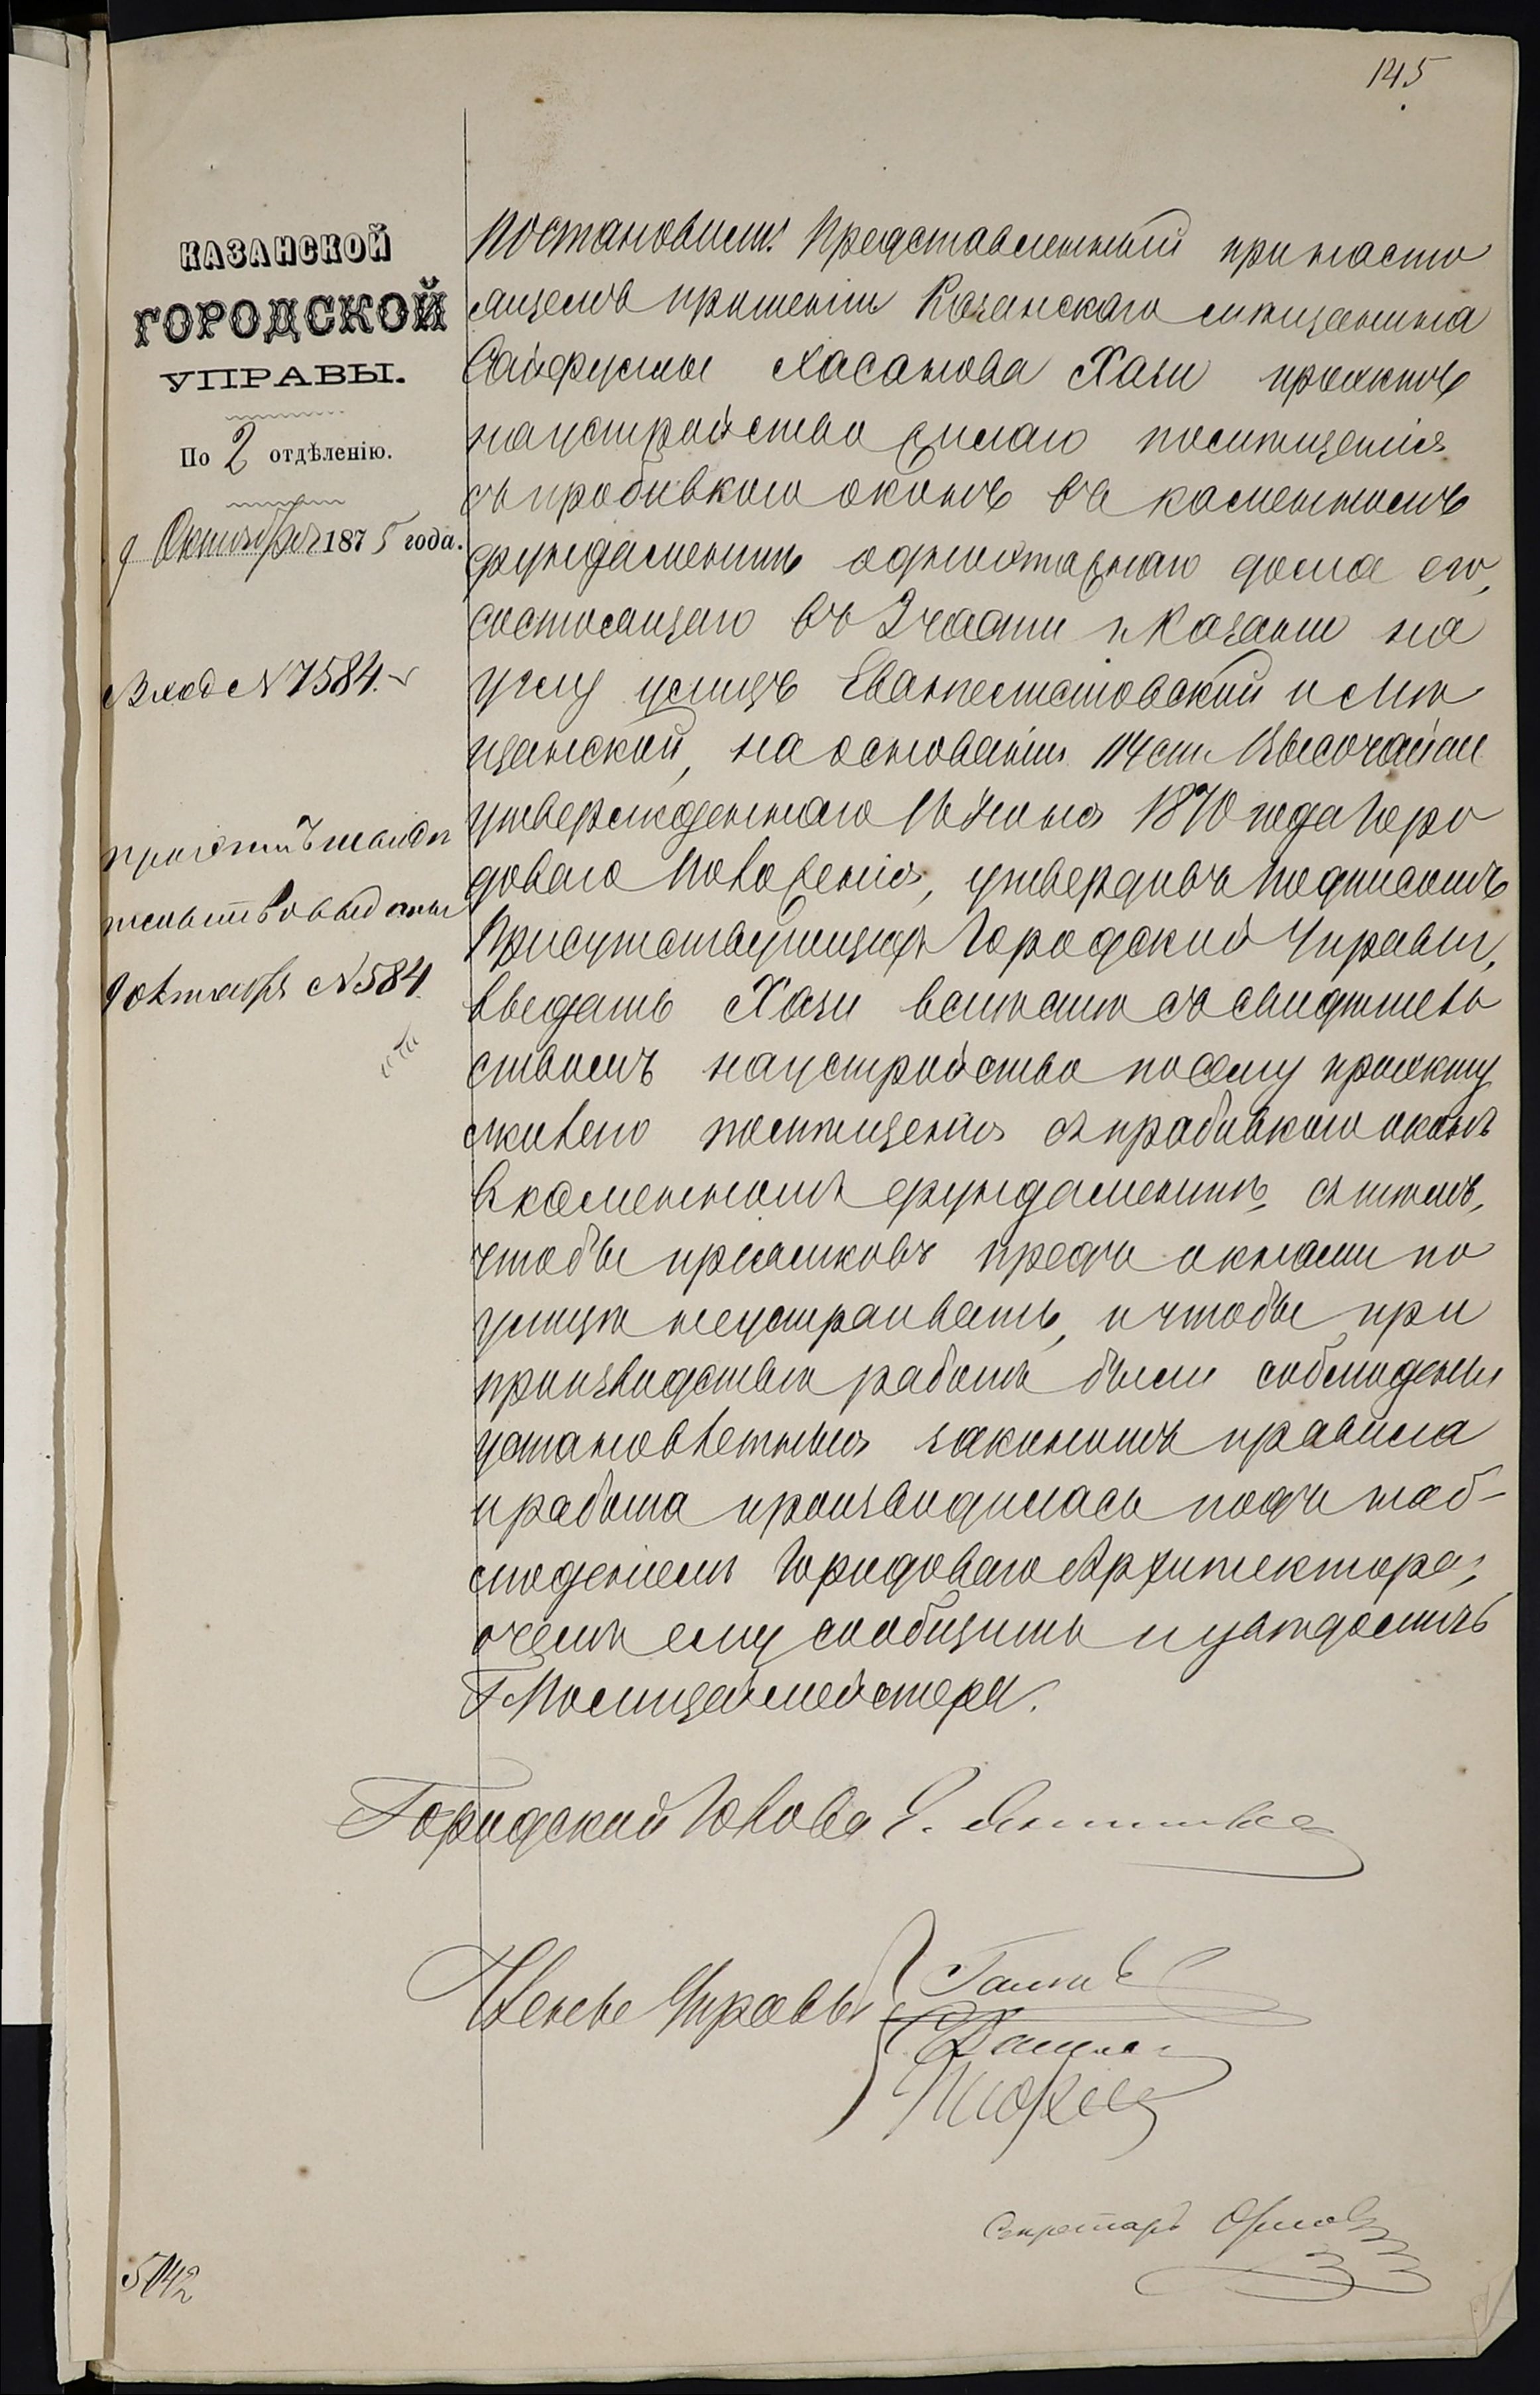 145
КАЗАНСКОЙ
ГОРОДСКОЙ
УПРАВЫ.
По 2 отдѣленію.
9 Октября 1875 года.
Вход N 7584.
проэктъ и
свидѣтельство выданы
9 октября N 584
Постановили: Представленный при насто
ящемъ прошеніи Казанскаго мѣщанина
Сайфуллы Хасанова Хази проэктъ
на устройство жилаго помѣщенія
съ пробивкою оконъ въ каменномъ
фундаментѣ одноэтажнаго дома его,
состоящаго въ 2 части г. Казани на
углу улицъ Евангелистовской и Мѣ
щанской, на основаніи 114 ст. Высочайше
утвержденнаго 16 Іюня 1870 года Горо
доваго Положенія, утвердивъ подписомъ
Присутствующихъ Городской Управы,
выдать Хази вмѣстѣ съ свидѣтель
ствомъ на устройство по сему проэкту
жилаго помѣщенія съ пробивкою оконъ
въ каменномъ фундаментѣ, съ тѣмъ,
чтобы приямковъ предъ окнами по
улицѣ не устраивать, и чтобы при
производствѣ работъ были соблюдены
установленныя закономъ правила
и работа производилась подъ наб-
люденіемъ Городоваго Архитектора;
о чемъ ему сообщить и увѣдомить
Г. Полицеймейстера.
Городской Голова Е.
Члены Управы
Секретарь Орлов
5142